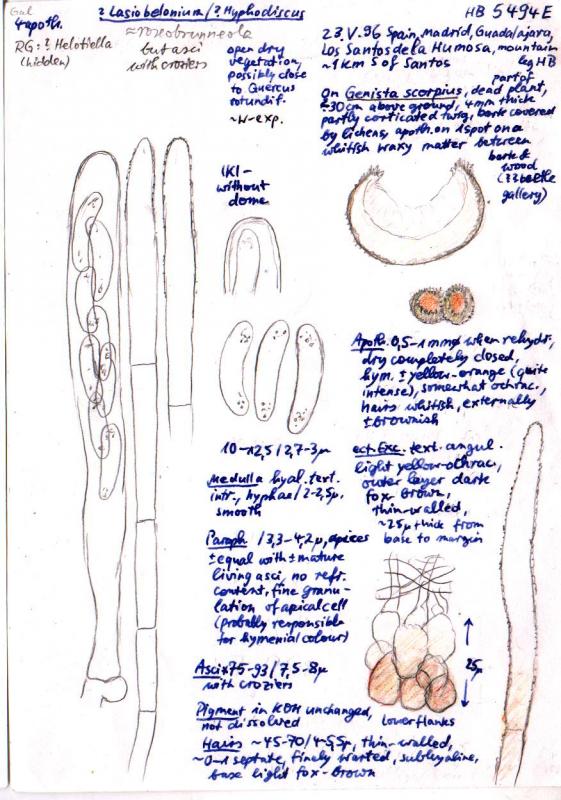 ? Lasiobelonium / ? Hyphodiscus
HB 5494E
4 apoth.
RG: ? Helotiella
(hidden)
≈ roseobrunneola
but asci
with croziers
open dry
vegetation,
possibly close
to Quercus
rotundif.
~W-exp.
23.V.96 Spain, Madrid, Guadalajara,
Los Santos de la Humosa, mountain
~1km S of Santos
leg HB
on Genista scorpius, dead plant,
part of
~30cm above ground, 4mm thick
partly corticated twig, bark covered
by lichens, apoth. on 1 spot on a
whitish waxy matter between
bark &
wood
(?? beetle
gallery)
IKI-
without
dome
Apoth. 0,5-1mmø when rehydr.,
dry completely closed,
hym. ± yellow-orange (quite
intense), somewhat ochrac.,
hairs whitish, externally
± brownish
10-12,5/2,7-3µ
Medulla hyal. text.
intr., hyphae /2-2,5µ,
smooth
ect. Exc. text. angul.
light yellow-ochrac.,
outer layer dark
fox-brown,
thin-walled,
~25µ thick from
base to margin
Paraph /3,3-4,2µ, apices
± equal with ± mature
living asci, no refr.
content, fine granu-
lation of apical cell
(probably responsible
for hymenial colour)
25µ
Asci *75-93/7,5-8µ
with croziers
Pigment in KOH unchanged,
not dissolved
lower flanks
Hairs ~45-70/4-5,5µ, thin-walled,
~0-1 septate, finely warted, subhyaline,
base light fox-brown